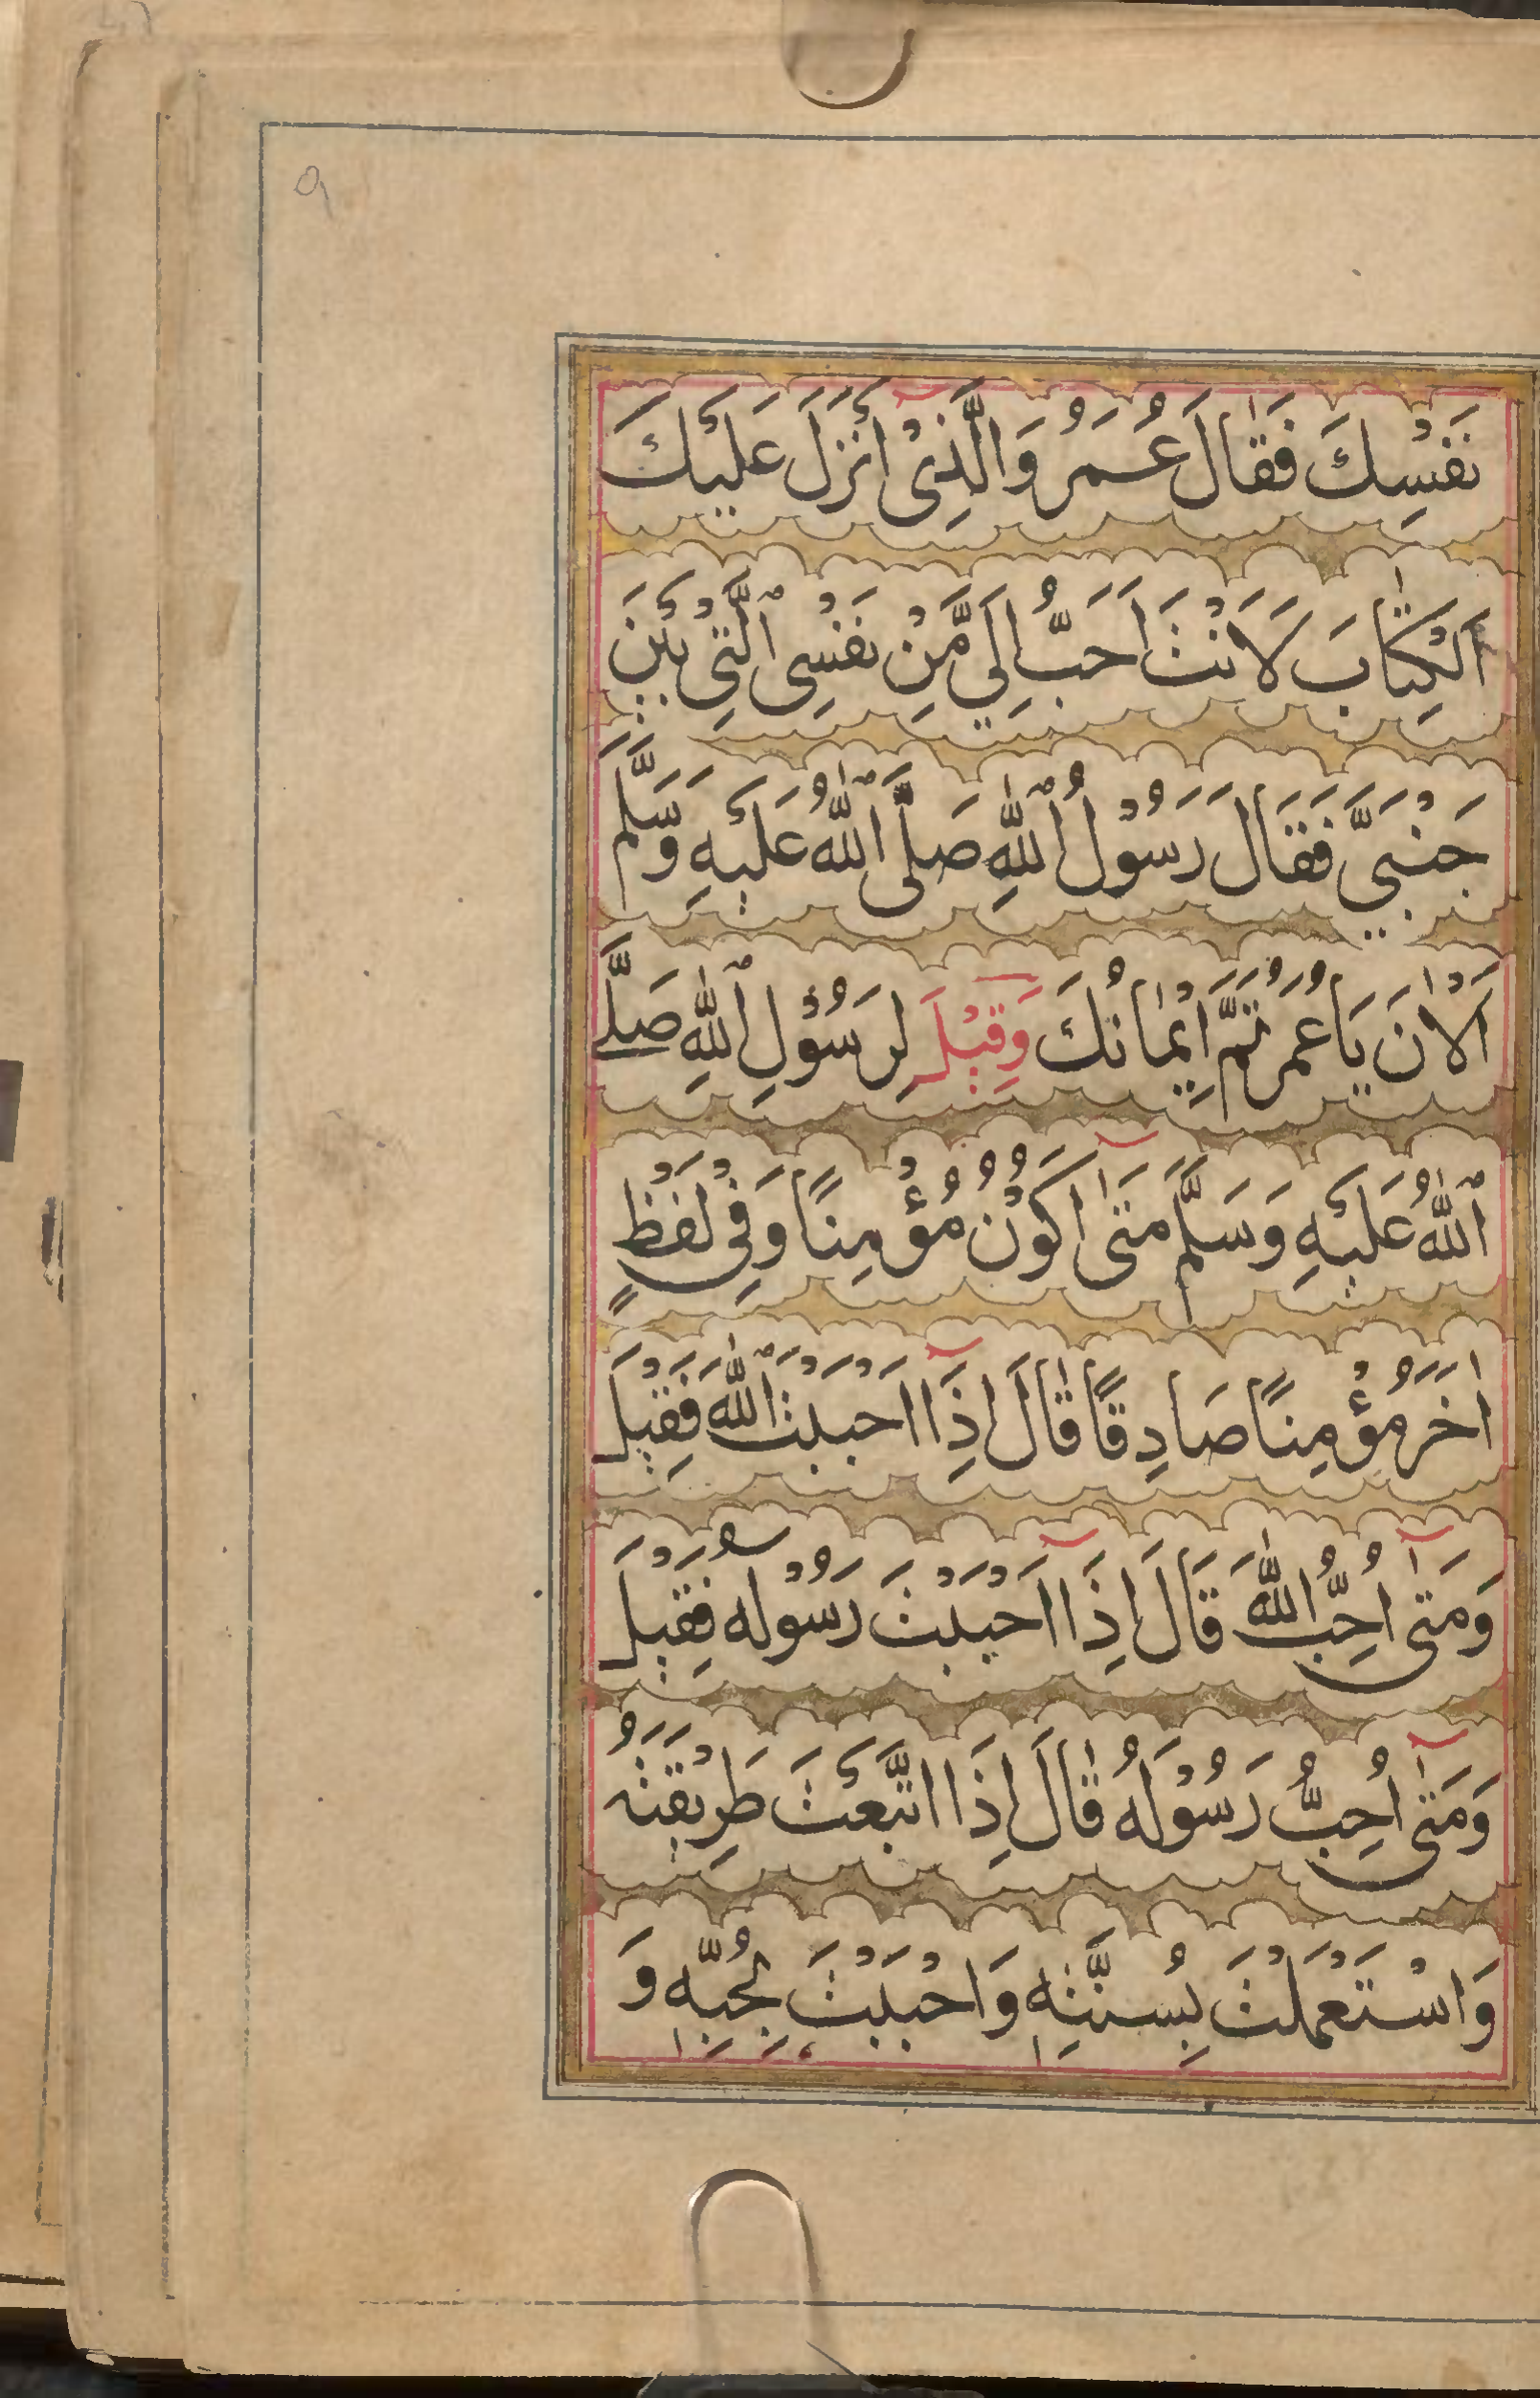 ٩
نَفْسِكَ فَقَالَ عُمَرُ وَالَّذِیْ اَنْزَلَ عَلَیْكَ
الْكِتَابَ لَاَنْتَ اَحَبُّ اِلَیَّ مِّنْ نَفْسِی الَّتِیْ بَیْنَ
جَنْبَیَّ فَقَالَ رَسُوْلُ اللّٰهِ صَلَّی اللّٰهُ عَلَیْهِ وَسَّلَّمَ
اَلْاٰنَ یَا عُمَرُ تَمَّ اِیْمَانُكَ وَقِیْلَ لِرَسُوْلِ اللّٰهِ صَلَّی
اللّٰهُ عَلَیْهِ وَسَلَّمَ مَتٰی اَكُوْنُ مُؤْمِنًا وَفِیْ لَفْظٍ
اٰخَرَ مُؤْمِنًا صَادِقًا قَالَ اِذَا اَحْبَبْتَ اللّٰهَ فَقِیْلَ
وَمَتٰی اُحِبُّ اللّٰهَ قَالَ اِذَا اَحْبَبْتَ رَسُوْلَهُ فَقِیْلَ
وَمَتٰی اُحِبُّ رَسُوْلَهُ قَالَ اِذَا اتَّبَعْتَ طَرِیْقَتَهُ
وَاسْتَعْمَلْتَ بِسُنَّتِهٖ وَاَحْبَبْتَ بِحُبِّهٖ وَ